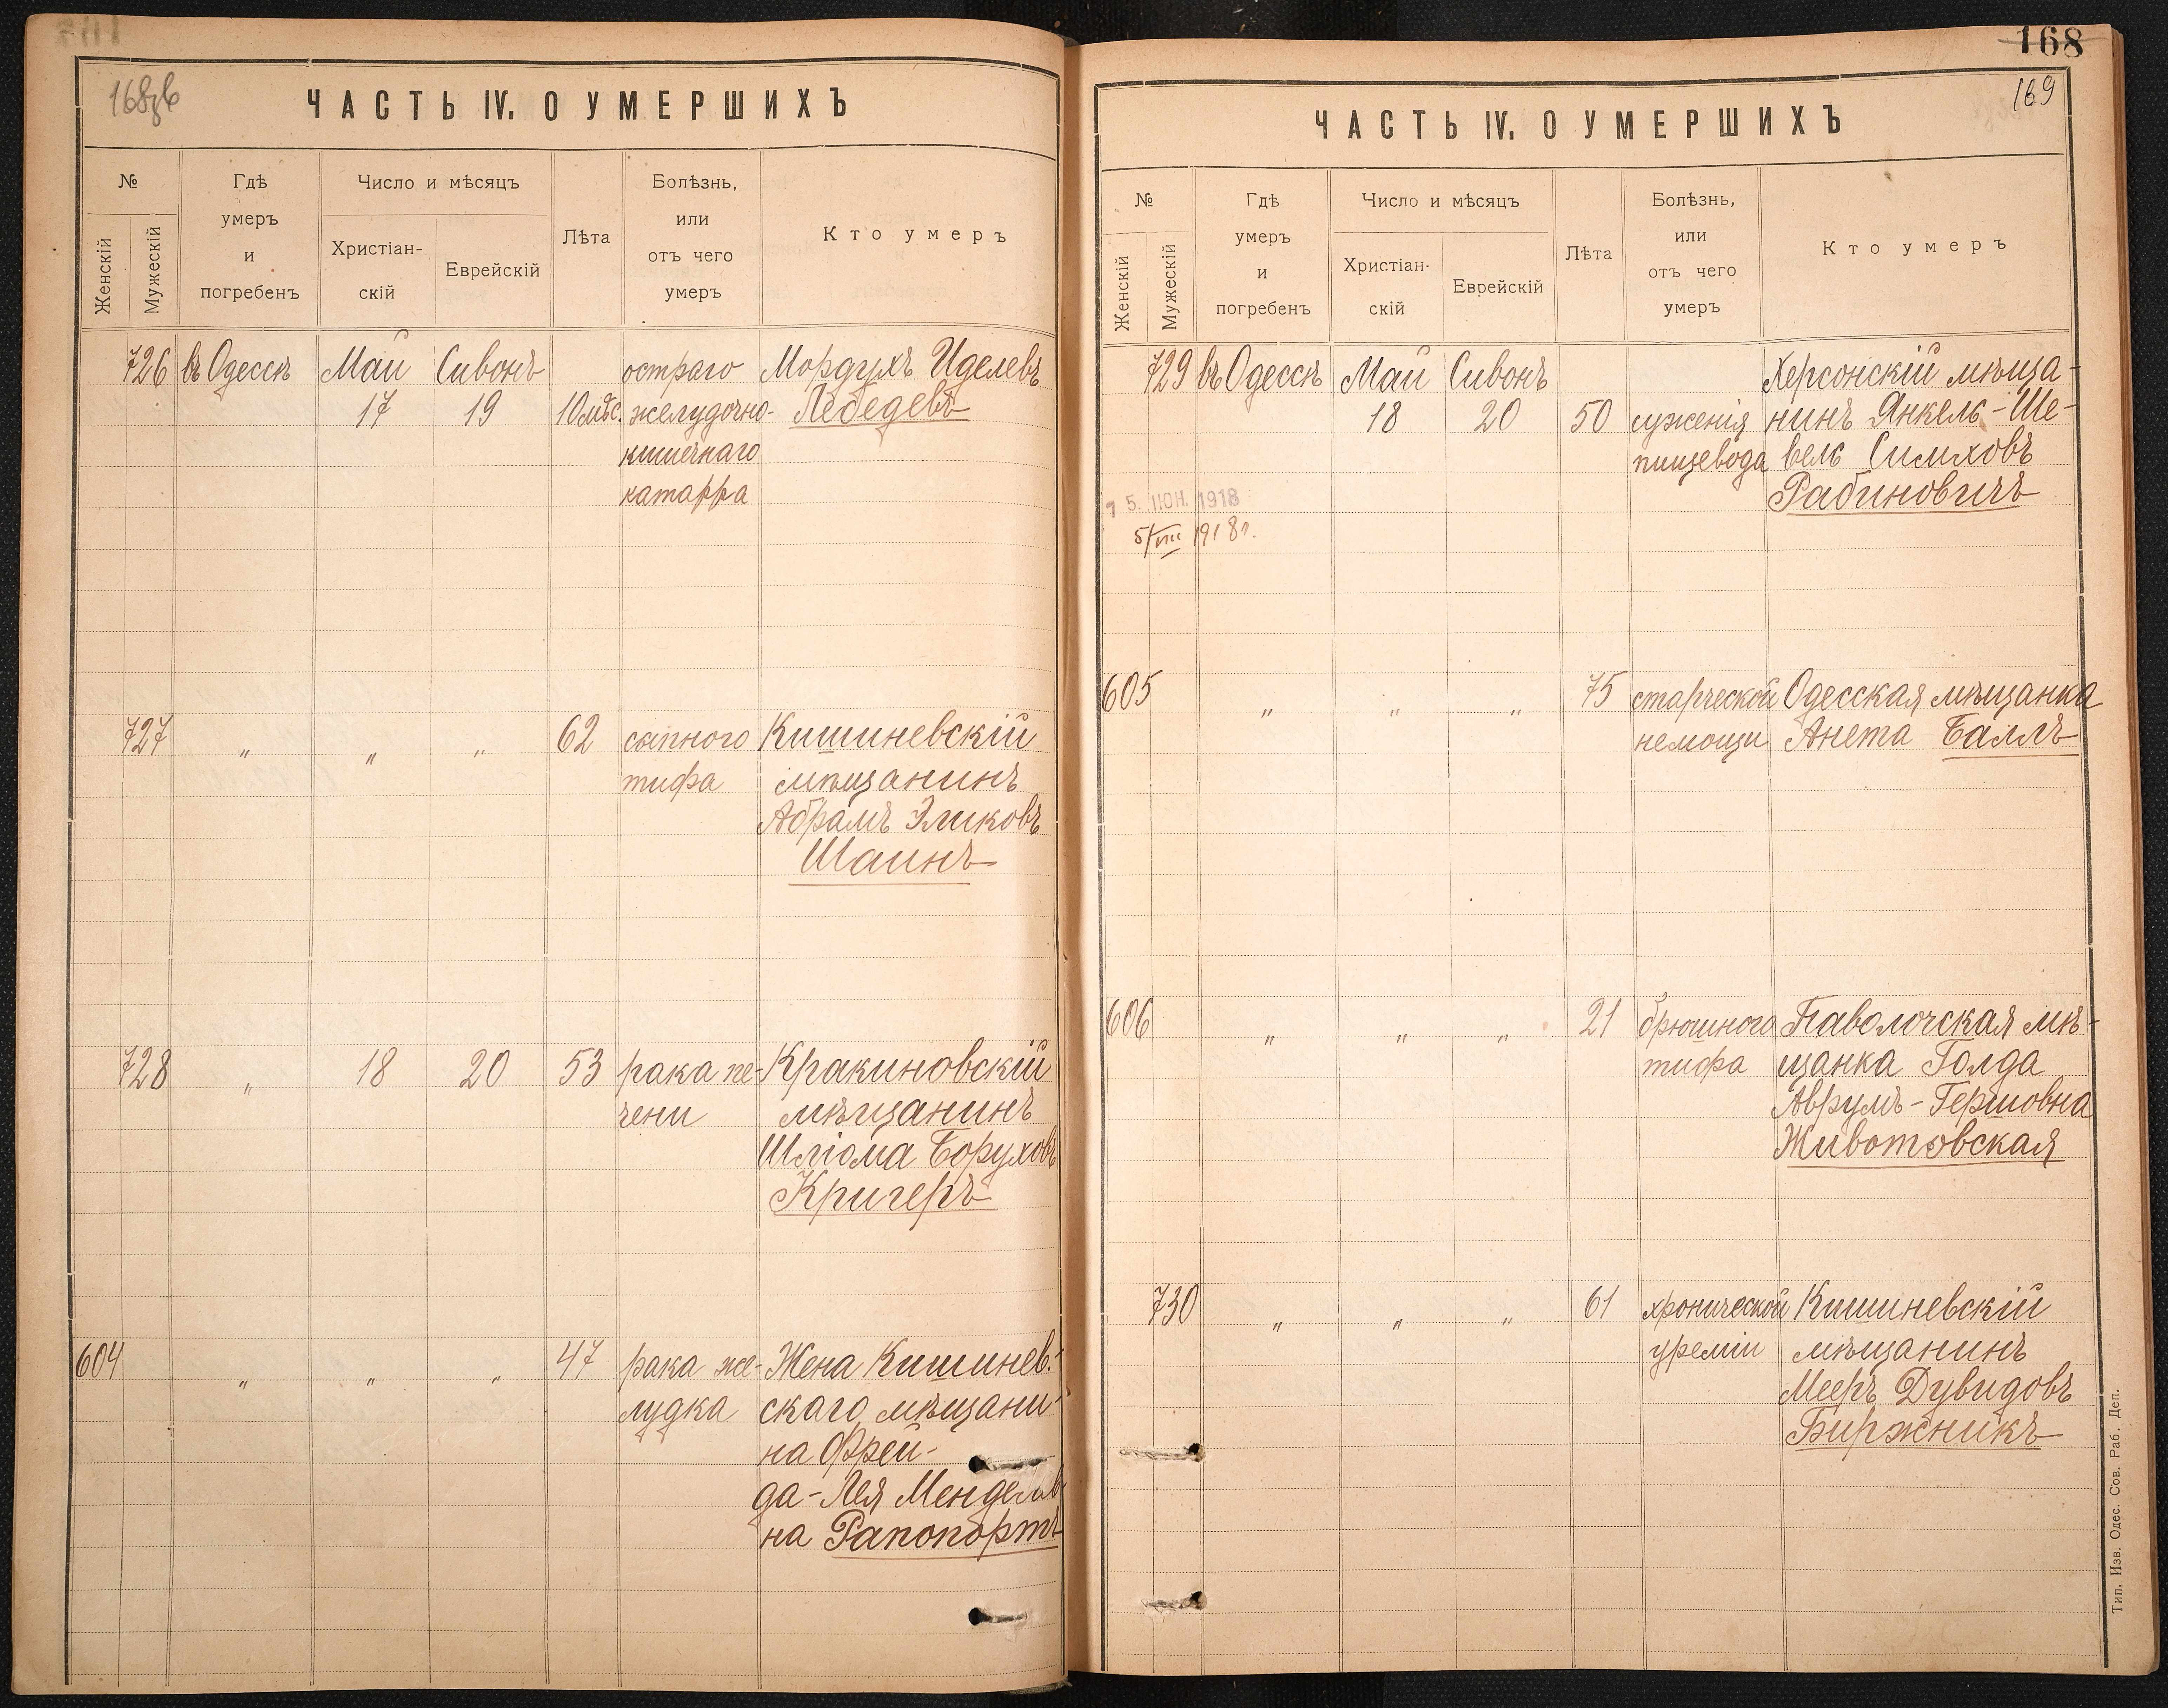 168об
ЧАСТЬ IV. О УМЕРШИХЪ
№
Женскій
Мужескій
Гдѣ
умеръ
и
погребенъ
Число и мѣсяцъ
Христіан-
скій
Еврейскій
Лѣта
Болѣзнь,
или
отъ чего
умеръ
Кто умеръ
726 въ Одессѣ Май Сивонъ остраго Мордухъ Иделевъ
17 19 10 мѣс. желудочно- Лебедевъ
кишечнаго
катарра
727 " " " 62 сыпного Кишиневскій
тифа мѣщанинъ
Абрамъ Эликовъ
Шаинъ
728 " 18 20 53 рака пе- Кракиновскій
чени мѣщанинъ
Шліома Боруховъ
Кригеръ
604 " " " 47 рака же- Жена Кишинев-
лудка скаго мѣщани-
на Фрей-
да-Лея Менделев-
на Рапопортъ
168
169
ЧАСТЬ IV. О УМЕРШИХЪ
№
Женскій
Мужескій
Гдѣ
умеръ
и
погребенъ
Число и мѣсяцъ
Христіан-
скій
Еврейскій
Лѣта
Болѣзнь,
или
отъ чего
умеръ
Кто умеръ
729 въ Одессѣ Май Сивонъ Херсонскій мѣща-
18 20 50 суженія нинъ Янкель-Ше-
пищевода вель Симховъ
Рабиновичъ
5. ІЮН. 1918
5/VIII 1918 г.
605 " " " 75 старческой Одесская мѣщанка
немощи Анета Баллъ
606 " " " 21 брюшного Паволочская мѣ-
тифа щанка Голда
Аврумъ-Гершовна
Животовская
730 " " " 61 хронической Кишиневскій
уреміи мѣщанинъ
Мееръ Дувидовъ
Биржникъ
Тип. Изв. Одес. Сов. Раб. Деп.